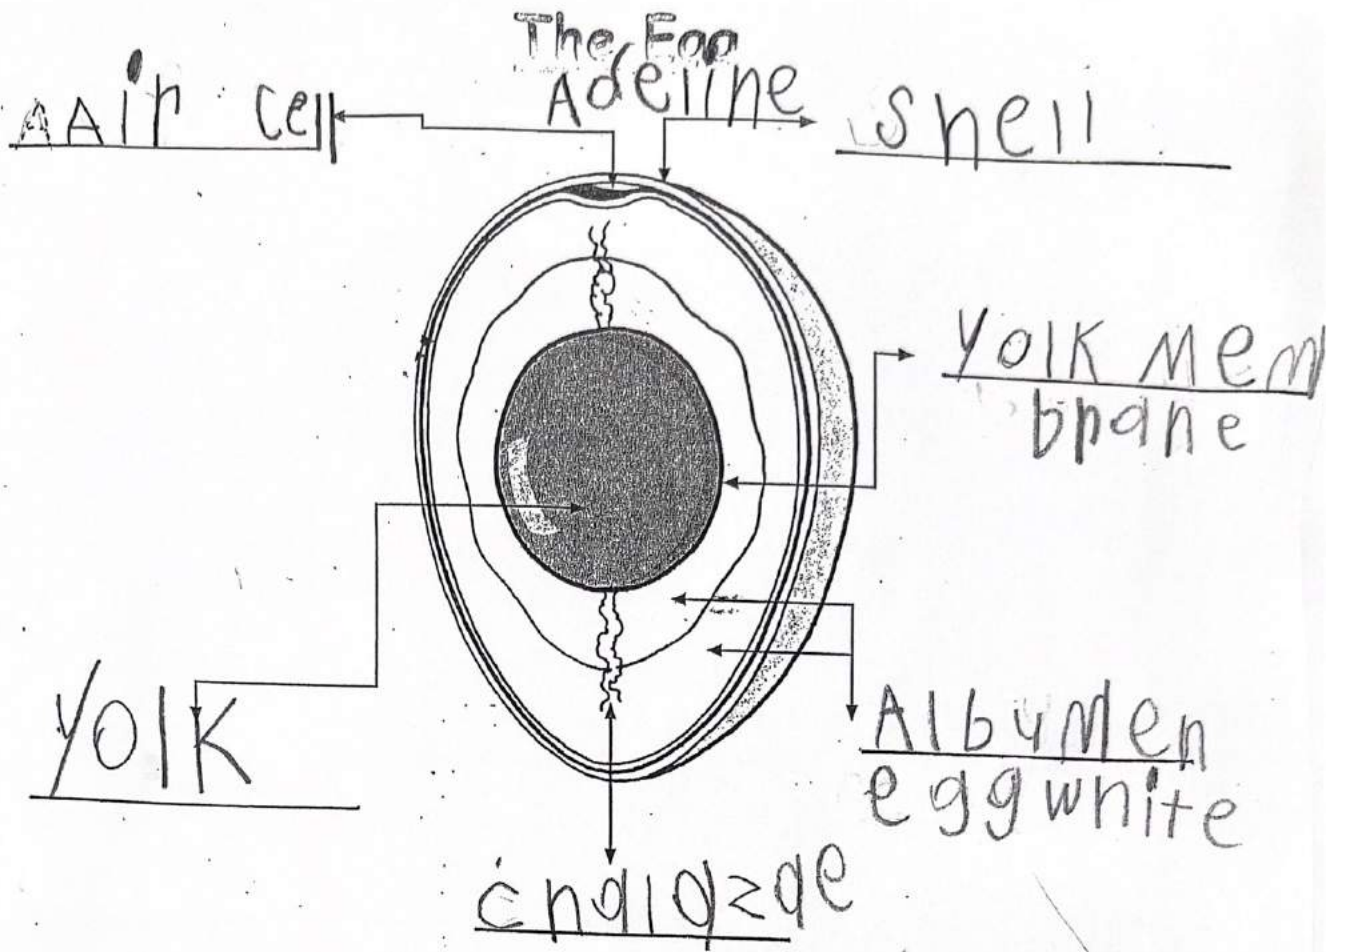 The Egg
Adeline
AAir cell
Shell
Yolk Mem
brane
Yolk
Albumen
egg white
chalazae